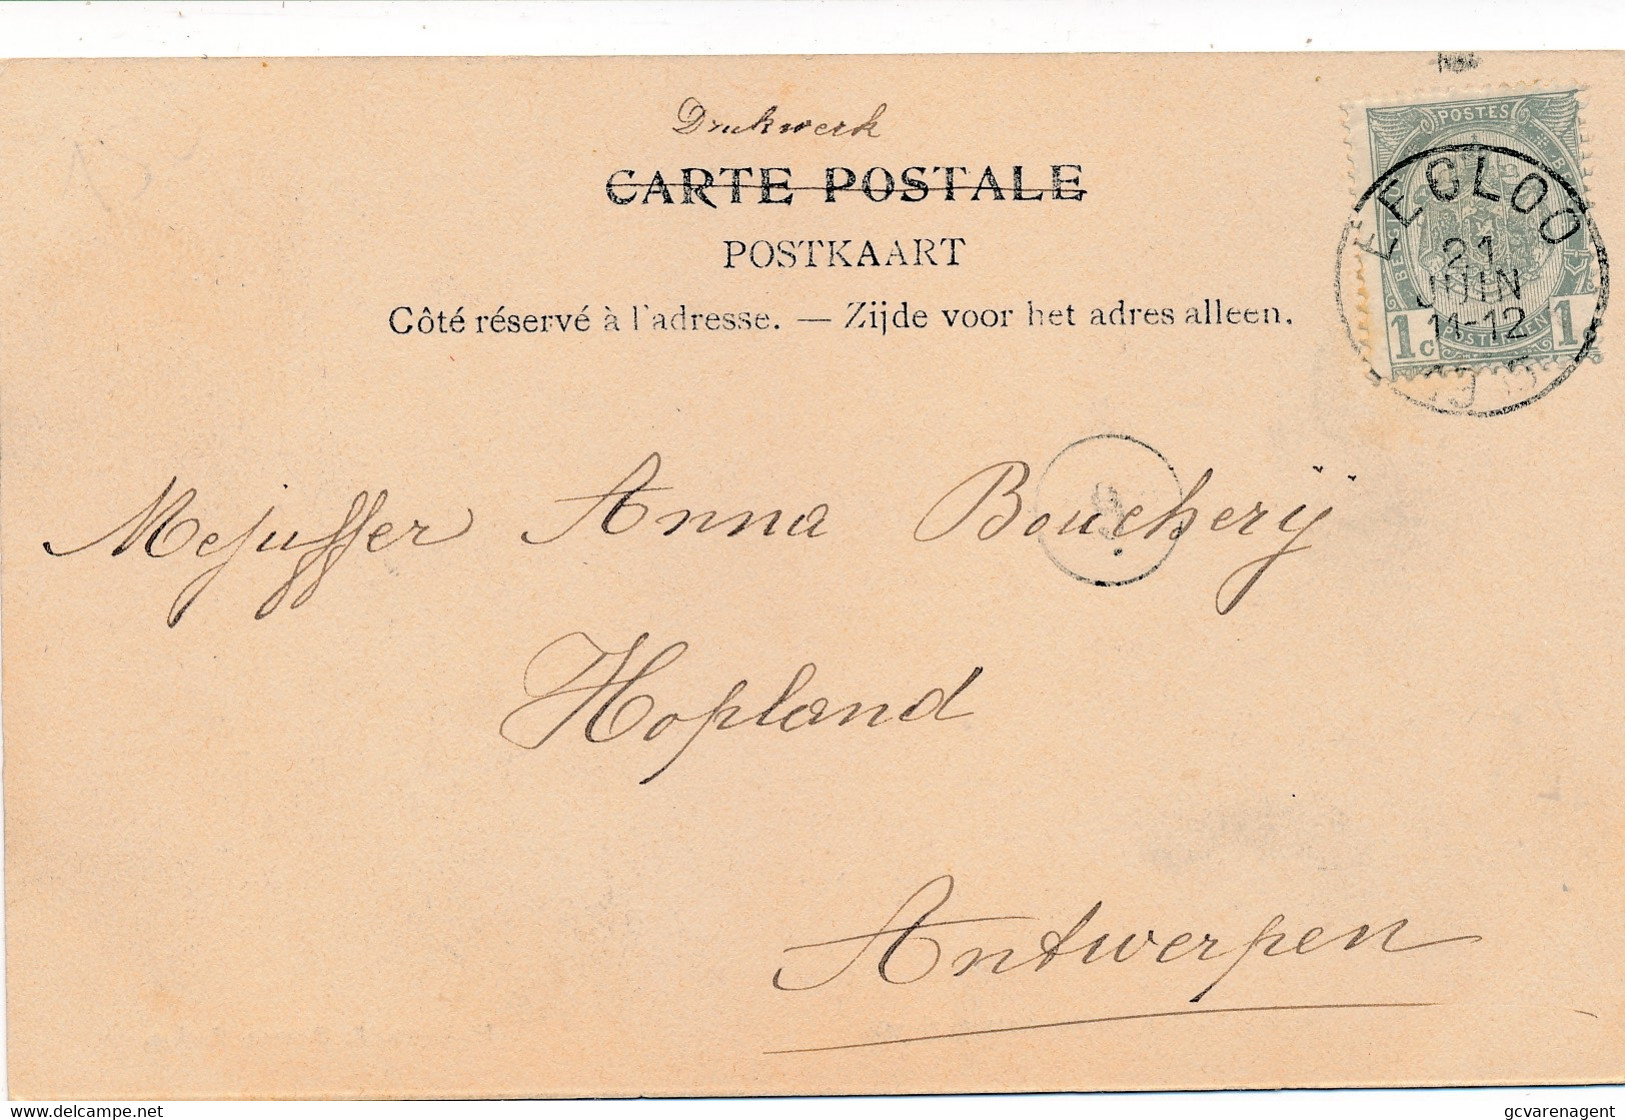 Drukwerk
CARTE POSTALE
POSTKAART
Côté réservé à l'adresse. — Zijde voor het adres alleen.
POSTES
EECLOO
21
JUIN
11-12
1c
POSTERIJEN
1c
Mejuffer Anna Boucherij
Hopland
Antwerpen
delcampe.net
gcvarenagent